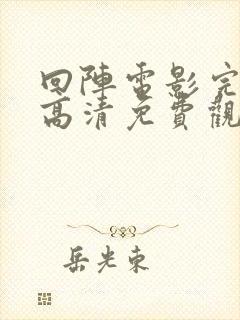 回陣電影完
高清免費觀
岳光東